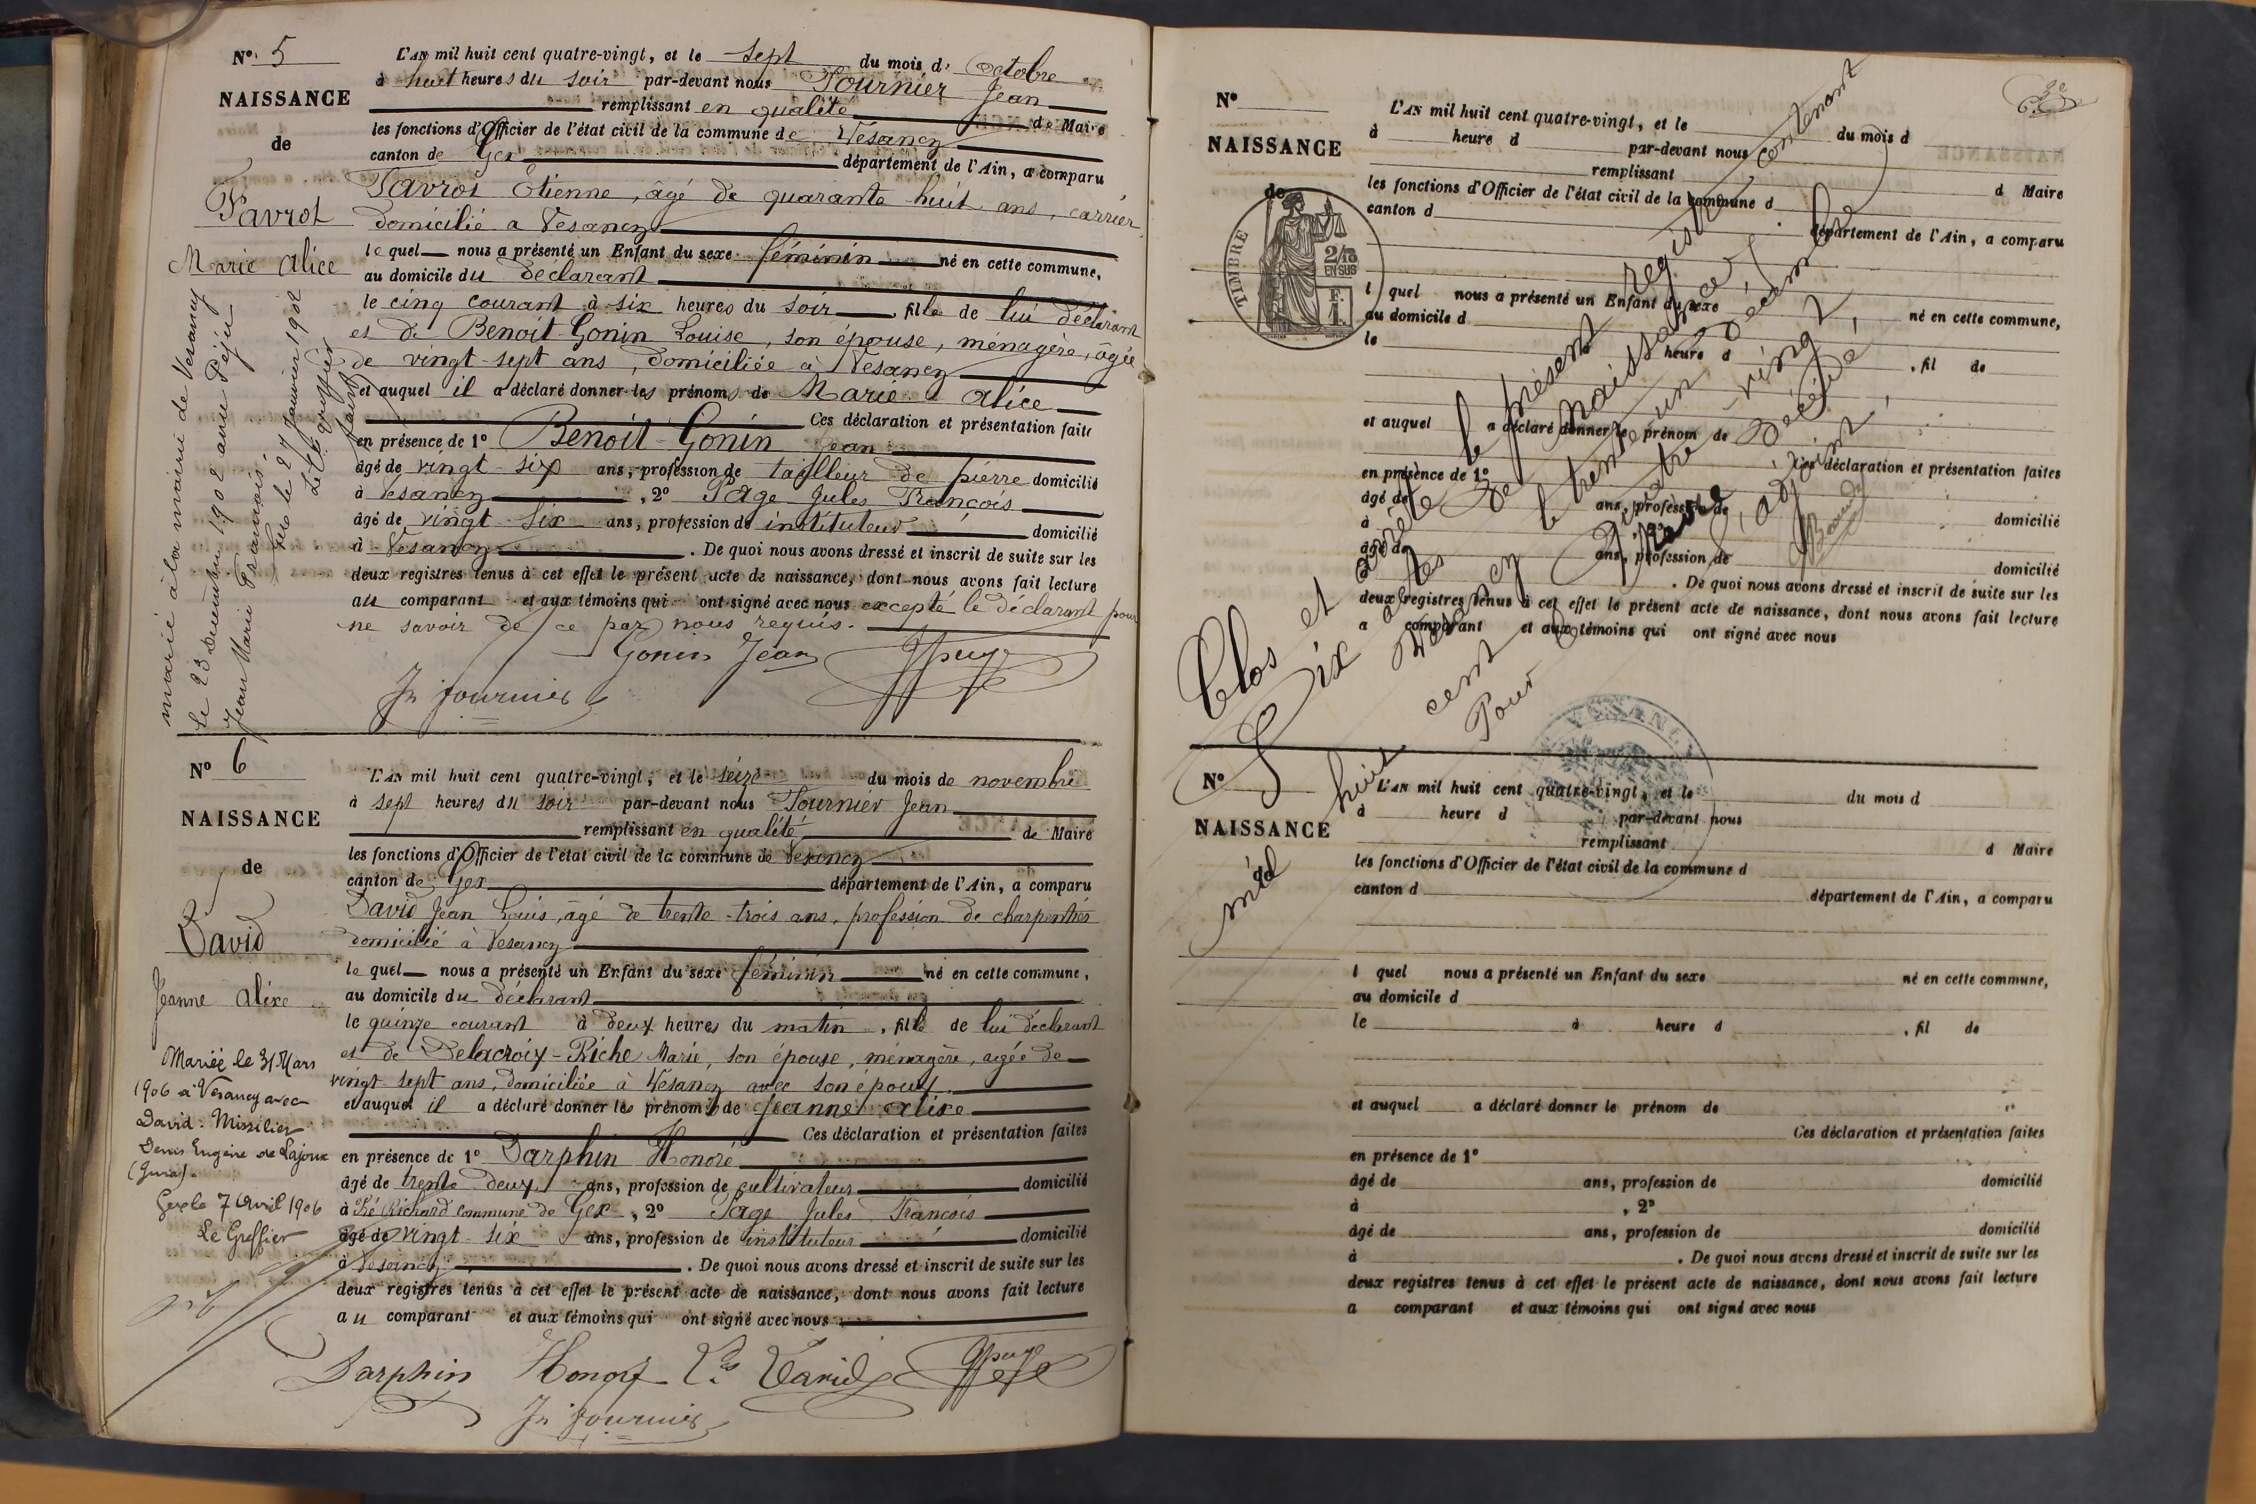 N° 5
NAISSANCE
de
Favrot
Marie Alice
marié à la mairie de Vesancy
le 23 Décembre 1902 avec Péju
Jean Marie François.
Gex le 27 Janvier 1902
Le Greffier
L'AN mil huit cent quatre-vingt, et le sept du mois d' octobre
à huit heures du soir par-devant nous Fournier Jean
remplissant en qualité de Maire
les fonctions d'Officier de l'état civil de la commune de Vesancy
canton de Gex département de l'Ain, a comparu
Favrot Etienne, âgé de quarante huit ans, carrier
domicilié a Vesancy
le quel nous a présenté un Enfant du sexe féminin né en cette commune,
au domicile du déclarant
le cinq courant à six heures du soir, fille de lui déclarant
et de Benoit Gonin Louise, son épouse, ménagère, âgée
de vingt-sept ans, domiciliée à Vesancy
et auquel il a déclaré donner les prénoms de Marie Alice
Ces déclaration et présentation faites
en présence de 1° Benoit Gonin Jean
âgé de vingt six ans, profession de tailleur de pierre domicilié
à Vesancy, 2° Page Jules François
âgé de vingt six ans, profession de instituteur domicilié
à Vesancy. De quoi nous avons dressé et inscrit de suite sur les
deux registres tenus à cet effet le présent acte de naissance, dont nous avons fait lecture
au comparant et aux témoins qui ont signé avec nous excepté le déclarant pour
ne savoir de ce par nous requis.
Gonin Jean
Jn fournier
N° 6
NAISSANCE
de
David
Jeanne Alixe
Mariée le 31 Mars
1906 à Vesancy avec
David-Missilier
Denis Eugène de Lajoux
(Jura).
Gex le 7 Avril 1906
Le Greffier
L'AN mil huit cent quatre-vingt, et le seize du mois de novembre
à sept heures du soir par-devant nous Fournier Jean
remplissant en qualité de Maire
les fonctions d'Officier de l'état civil de la commune de Vesancy
canton de Gex département de l'Ain, a comparu
David Jean Louis, âgé de trente-trois ans, profession de charpentier
domicilié à Vesancy
le quel nous a présenté un Enfant du sexe féminin né en cette commune,
au domicile du déclarant
le quinze courant à deux heures du matin, fille de lui déclarant
et de Delacroix-Riche Marie, son épouse, ménagère, agée de
vingt sept ans, domiciliée à Vesancy avec son époux.
et auquel il a déclaré donner les prénoms de Jeanne Alixe
Ces déclaration et présentation faites
en présence de 1° Darphin Honoré
âgé de trente deux ans, profession de cultivateur domicilié
à Pré Richard commune de Gex, 2° Page Jules François
âgé de vingt six ans, profession de instituteur domicilié
à Vesancy. De quoi nous avons dressé et inscrit de suite sur les
deux registres tenus à cet effet le présent acte de naissance, dont nous avons fait lecture
au comparant et aux témoins qui ont signé avec nous
Darphin Honoré Ls David
Jn fournier
N°
NAISSANCE
de
TIMBRE
2/10
EN SUS
F.
1.
L'AN mil huit cent quatre-vingt, et le du mois d
à heure d par-devant nous
remplissant d Maire
les fonctions d'Officier de l'état civil de la commune d
canton d
département de l'Ain, a comparu
l quel nous a présenté un Enfant du sexe né en cette commune,
au domicile d
le à heure d, fil de
et auquel a déclaré donner le prénom de
Ces déclaration et présentation faites
en présence de 1°
âgé de ans, profession de domicilié
à, 2°
âgé de ans, profession de domicilié
à. De quoi nous avons dressé et inscrit de suite sur les
deux registres tenus à cet effet le présent acte de naissance, dont nous avons fait lecture
a comparant et aux témoins qui ont signé avec nous
Clos et arrêté le présent registre contenant
Six actes de naissances.
Vesancy le trente-un Décembre
mil huit cent quatre-vingt.
Pour Maire décédé,
L'adjoint,
VESANCY
N°
NAISSANCE
d
L'AN mil huit cent quatre-vingt, et le du mois d
à heure d par-devant nous
remplissant d Maire
les fonctions d'Officier de l'état civil de la commune d
canton d département de l'Ain, a comparu
l quel nous a présenté un Enfant du sexe né en cette commune,
au domicile d
le à heure d, fil de
et auquel a déclaré donner le prénom de
Ces déclaration et présentation faites
en présence de 1°
âgé de ans, profession de domicilié
à, 2°
âgé de ans, profession de domicilié
à. De quoi nous avons dressé et inscrit de suite sur les
deux registres tenus à cet effet le présent acte de naissance, dont nous avons fait lecture
a comparant et aux témoins qui ont signé avec nous